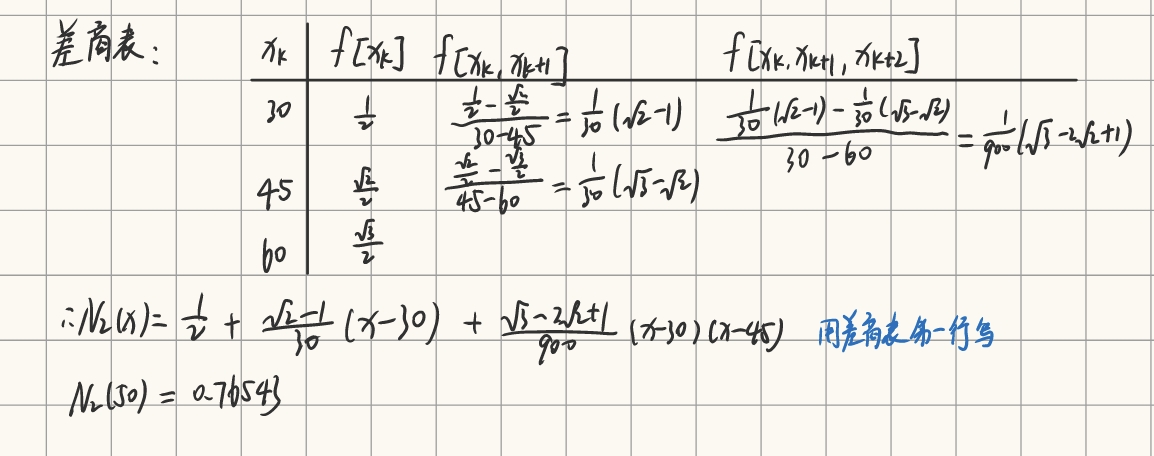 差商表: xₖ f[xₖ] f[xₖ, xₖ₊₁] f[xₖ, xₖ₊₁, xₖ₊₂]
30 1/2 (1/2 - √2/2)/(30-45) = 1/30 (√2-1) (1/30 (√2-1) - 1/30 (√3-√2))/(30-60) = 1/900 (√3-2√2+1)
45 √2/2 (√2/2 - √3/2)/(45-60) = 1/30 (√3-√2)
60 √3/2
∴N₂(x) = 1/2 + (√2-1)/30 (x-30) + (√3-2√2+1)/900 (x-30)(x-45) 用差商表第一行写
N₂(50) = 0.76543